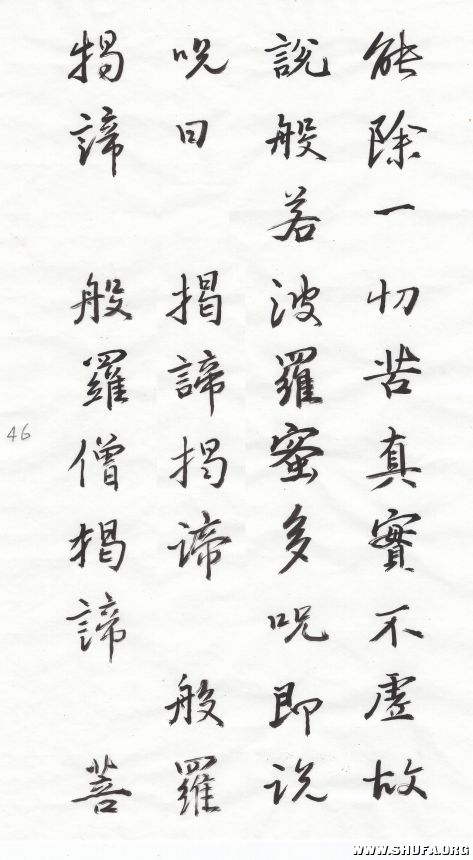 能除一切苦真實不虛故
說般若波羅蜜多呪即说
呪曰 揭諦揭諦 般羅
揭諦 般羅僧揭諦 菩
46
WWW.SHUFA.ORG